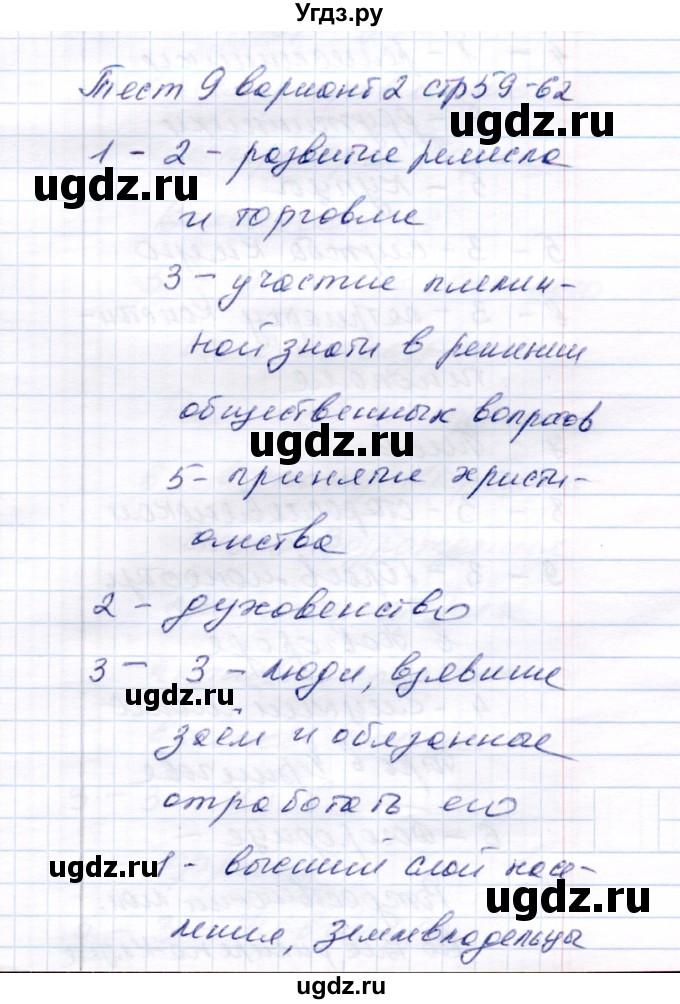 Угдз.ру
Тест 9 вариант 2 стр 59-62
ugdz.ru
1 - 2 - развитие ремесла
ugdz.ru
и торговли
3 - участие племен-
ной знати в решении
общественных вопросов
ugdz.ru
5 - принятие христи-
ugdz.ru
анства
2 - духовенство
3 - 3 - люди, взявшие
ugdz.ru
заём и обязанные
отработать его
ugdz.ru
ugdz.ru
1 - высший слой насе-
ления, землевладельцы
ugdz.ru